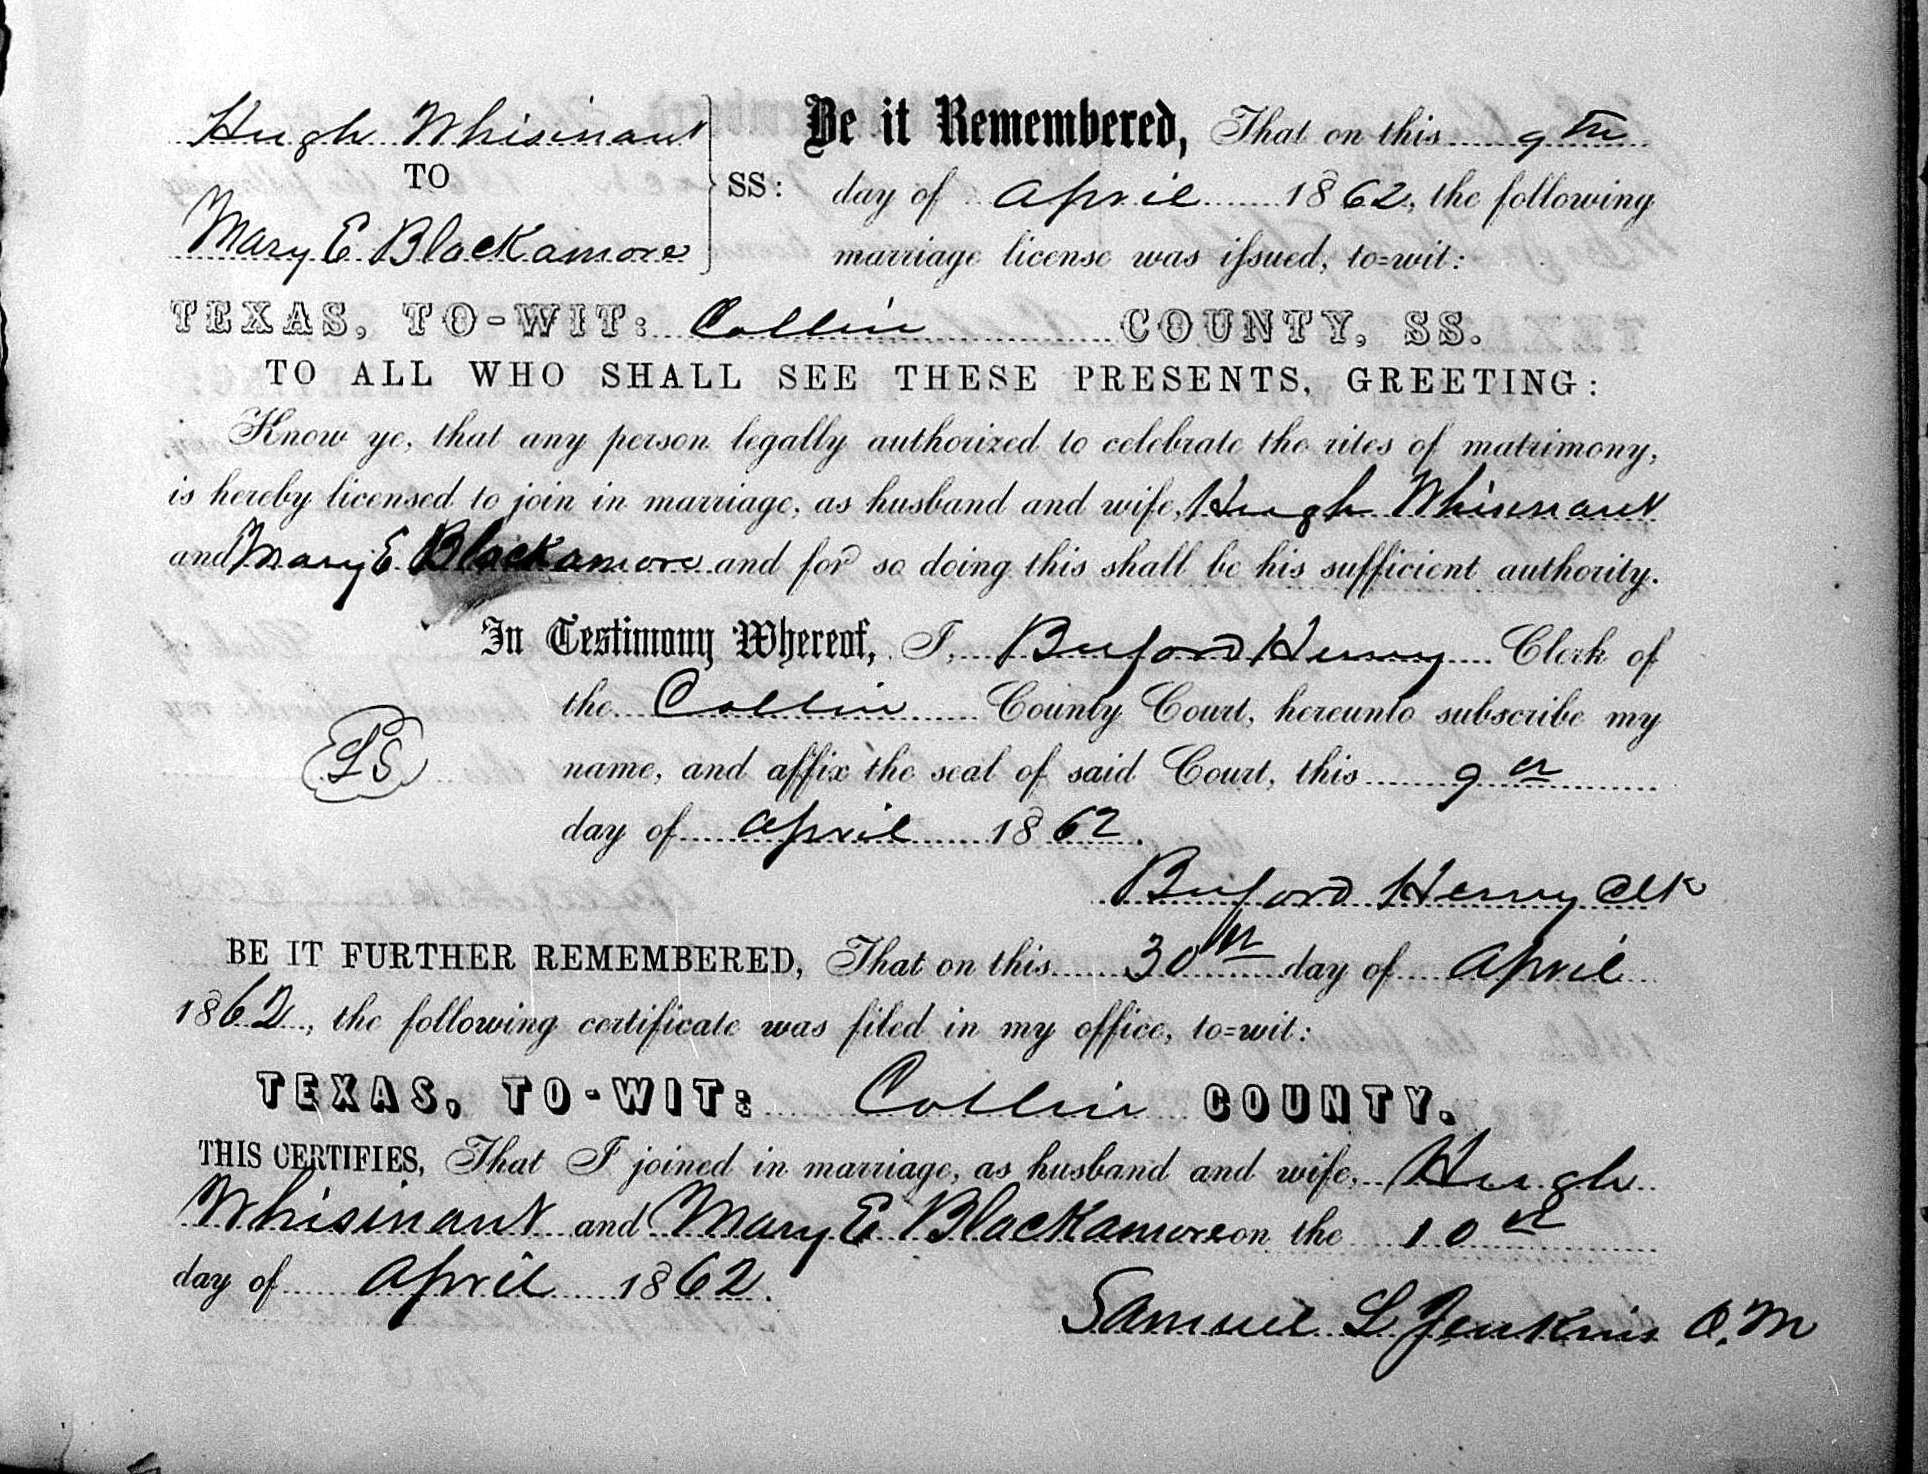 Hugh Whisinant
TO
Mary E Blackamore
SS:
Be it Remembered, That on this 9th
day of April 1862, the following
marriage license was issued, to=wit:
TEXAS, TO-WIT: Collin COUNTY, SS.
TO ALL WHO SHALL SEE THESE PRESENTS, GREETING:
Know ye, that any person legally authorized to celebrate the rites of matrimony,
is hereby licensed to join in marriage, as husband and wife, Hugh Whisinant
and Mary E Blackamore and for so doing this shall be his sufficient authority.
In Testimony Whereof, I, Buford Henry Clerk of
the Collin County Court, hereunto subscribe my
LS
name, and affix the seal of said Court, this 9th
day of April 1862.
Buford Henry Clk
BE IT FURTHER REMEMBERED, That on this 30th day of April
1862, the following certificate was filed in my office, to=wit:
TEXAS, TO-WIT: Collin COUNTY.
THIS CERTIFIES, That I joined in marriage, as husband and wife, Hugh
Whisinant and Mary E Blackamore on the 10th
day of April 1862.
Samuel L Jenkins O.M